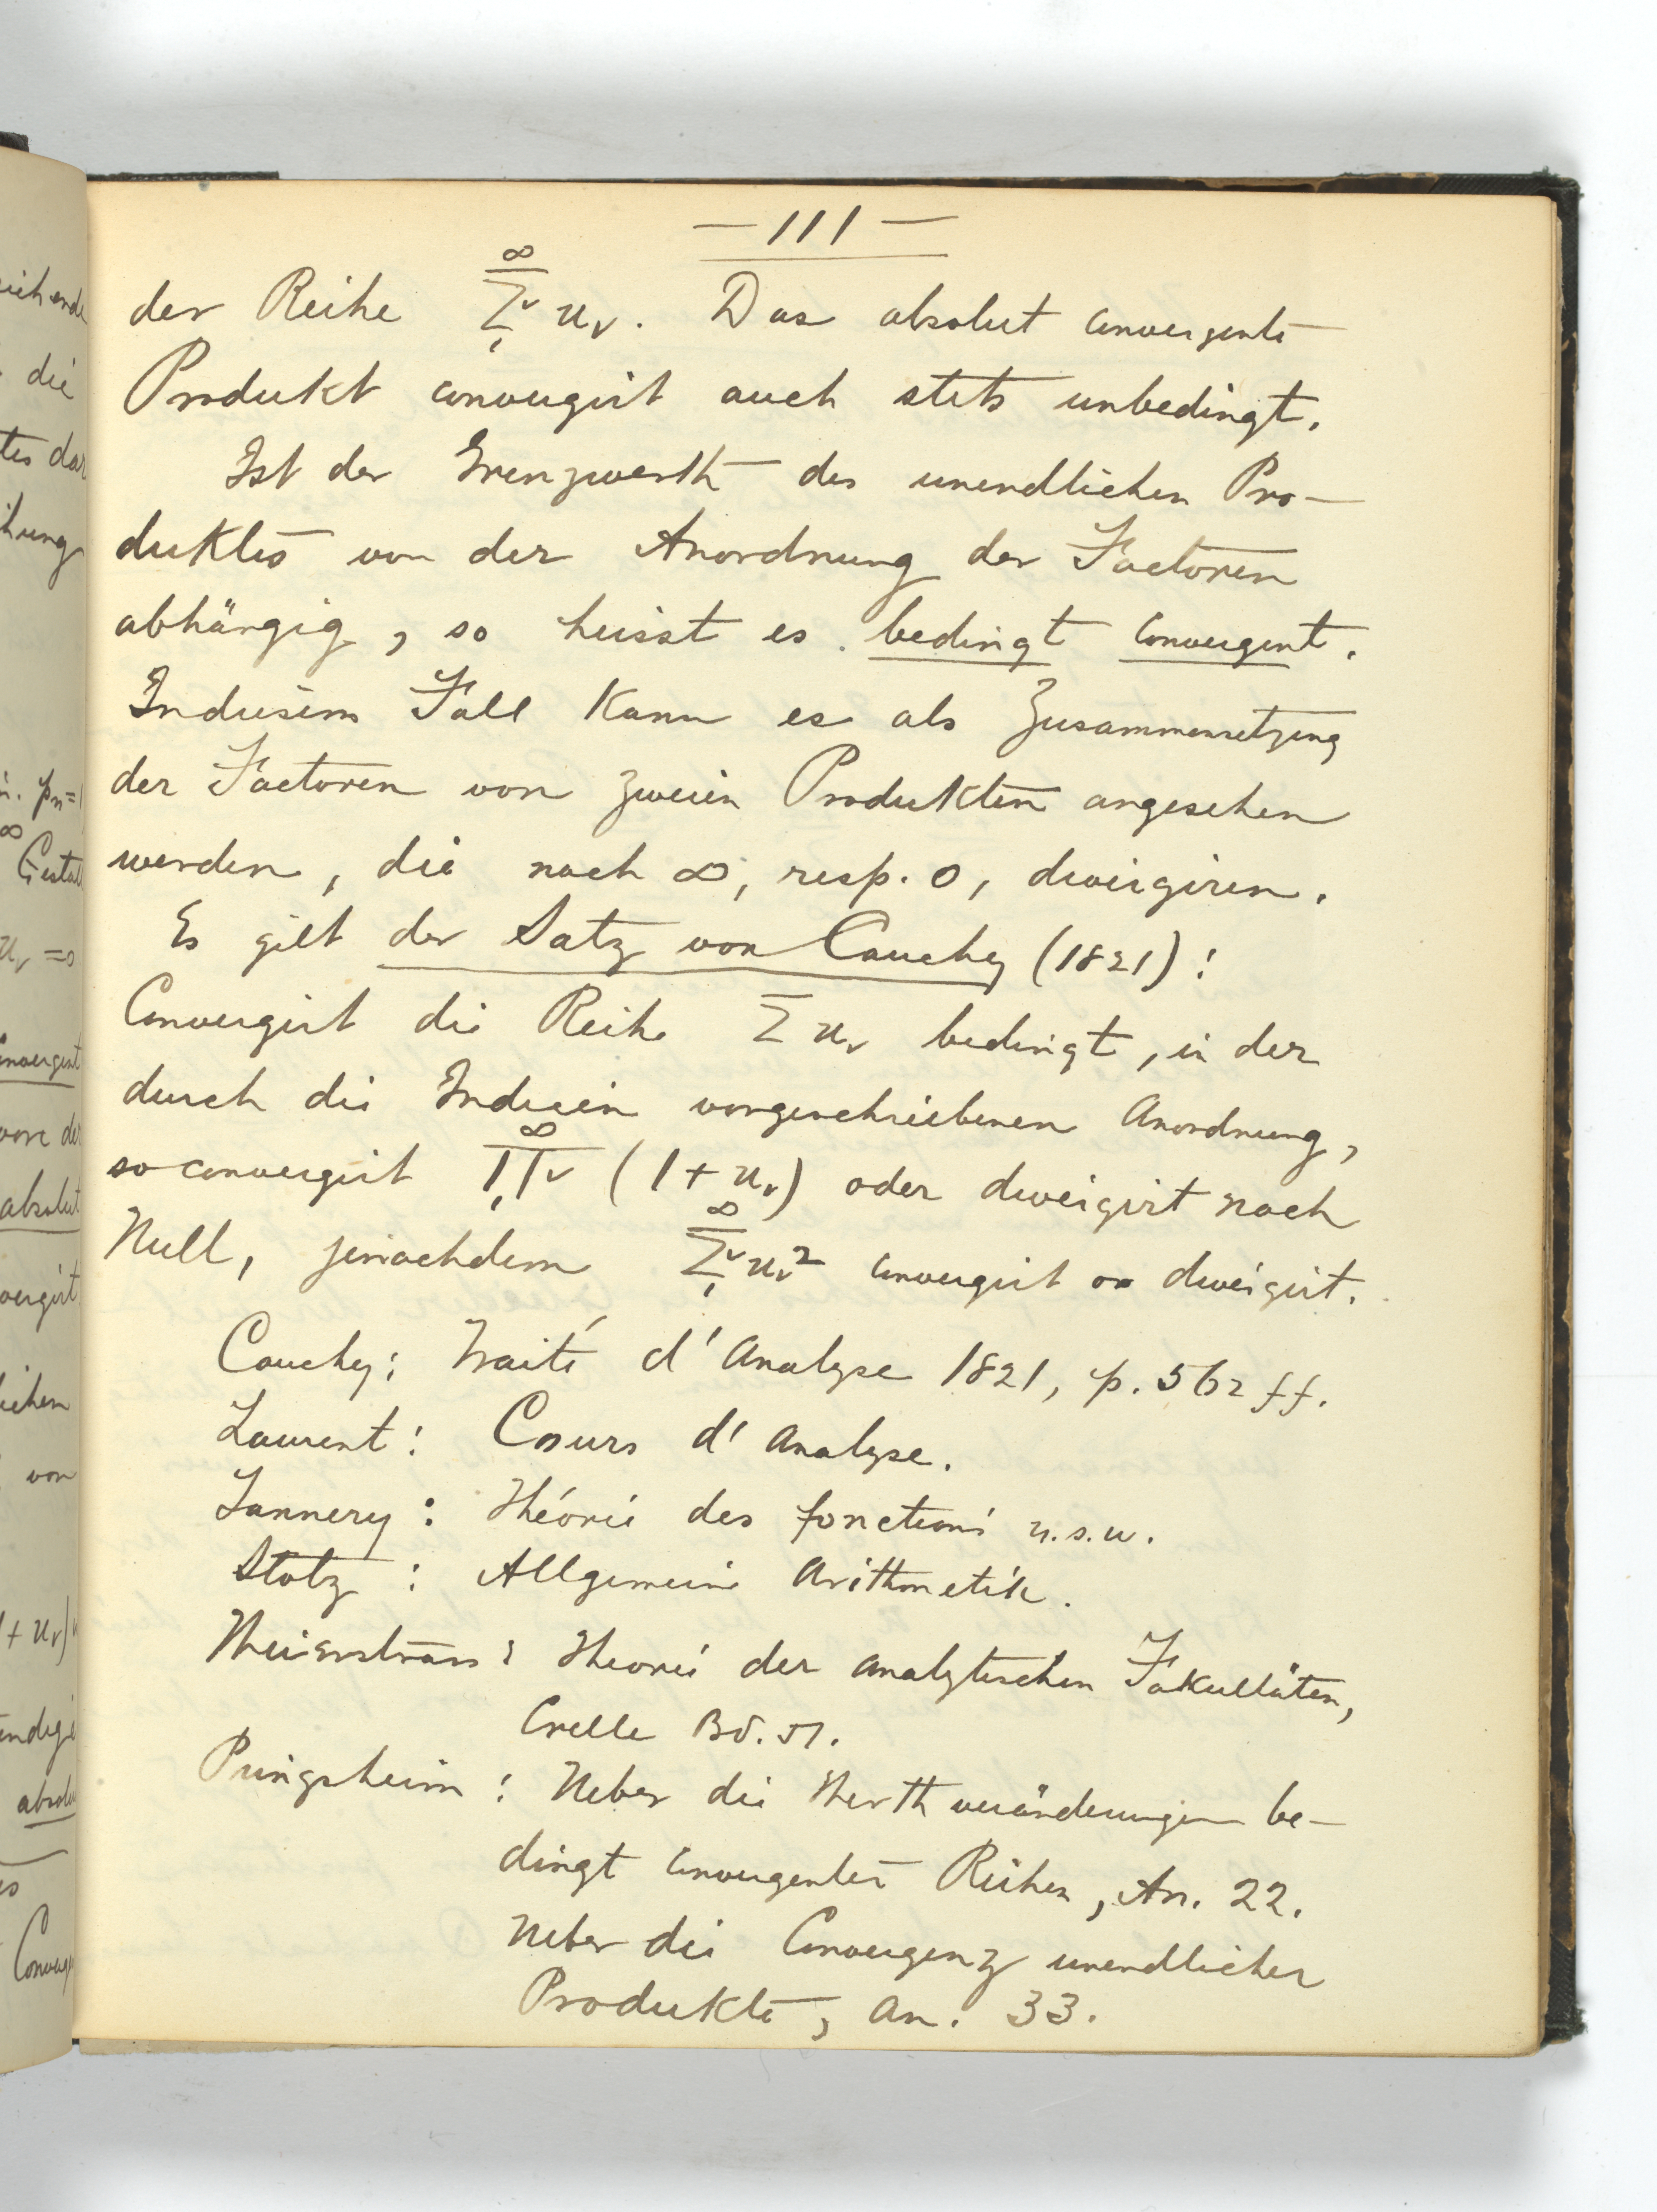 — 111 —
der Reihe ∞ Σν 1 uν. Das absolut convergente
Produkt convergirt auch stets unbedingt.
Ist der Grenzwerth des unendlichen Pro-
duktes von der Anordnung der Factoren
abhängig, so heisst es bedingt convergent.
In diesem Fall kann es als Zusammensetzung
der Factoren von zweien Produkten angesehen
werden, die nach ∞, resp. 0, divergiren.
Es gilt der Satz von Cauchy (1821):
Convergirt die Reihe Σ uν bedingt, in der
durch die Indicien vorgeschriebenen Anordnung,
so convergirt ∞ Πν 1 (1 + uν) oder divergirt nach
Null, jenachdem ∞ Σν 1 uν² convergirt or divergirt.
Cauchy: Traité d'Analyse 1821, p. 562 ff.
Laurent: Cours d'Analyse.
Tannery: Théorie des fonctions u.s.w.
Stolz: Allgemeine Arithmetik.
Weierstrass: Theorie der analytischen Fakultäten,
Crelle Bd. 51.
Pringsheim: Ueber die Werthveränderungen be-
dingt convergenter Reihen, An. 22.
Ueber die Convergenz unendlicher
Produkte, An. 33.
die
hung
Gestal
uν = 0
absolut
von